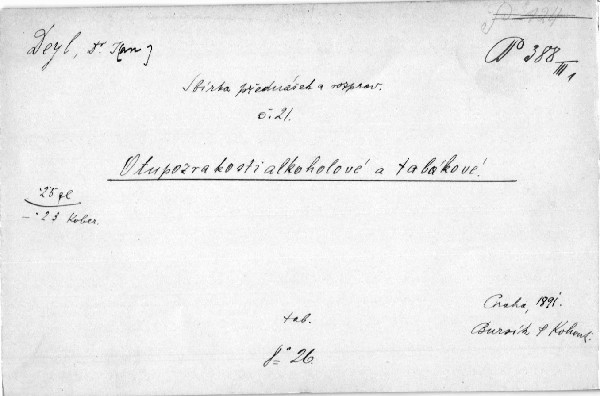 Deyl, Dr Jan
P 388
III 1
Sbírka přednášek a rozprav.
č. 21.
O tupozrakosti alkoholové a tabákové.
25 zl
23 Kober.
Praha, 1891.
Bursík & Kohout.
tab.
8° 26